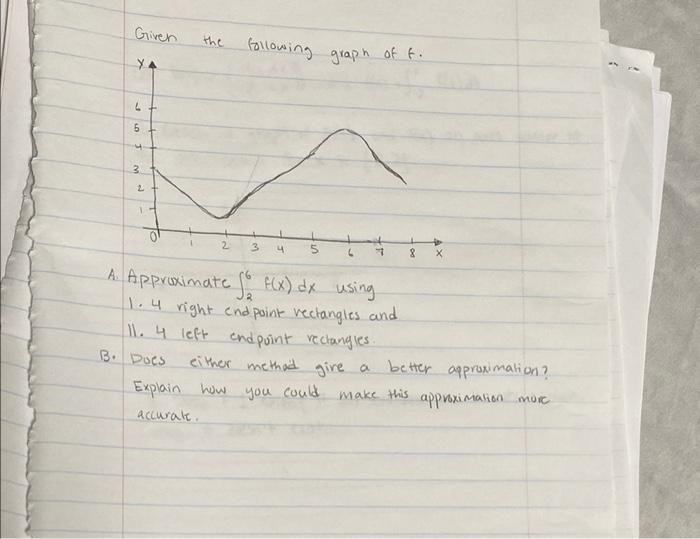 Given the following graph of f.
Y
6
5
4
3
2
1
0 1 2 3 4 5 6 7 8 X
A. Approximate ∫₂⁶ f(x) dx using
I. 4 right endpoint rectangles and
II. 4 left endpoint rectangles.
B. Does either method give a better approximation?
Explain how you could make this approximation more
accurate.